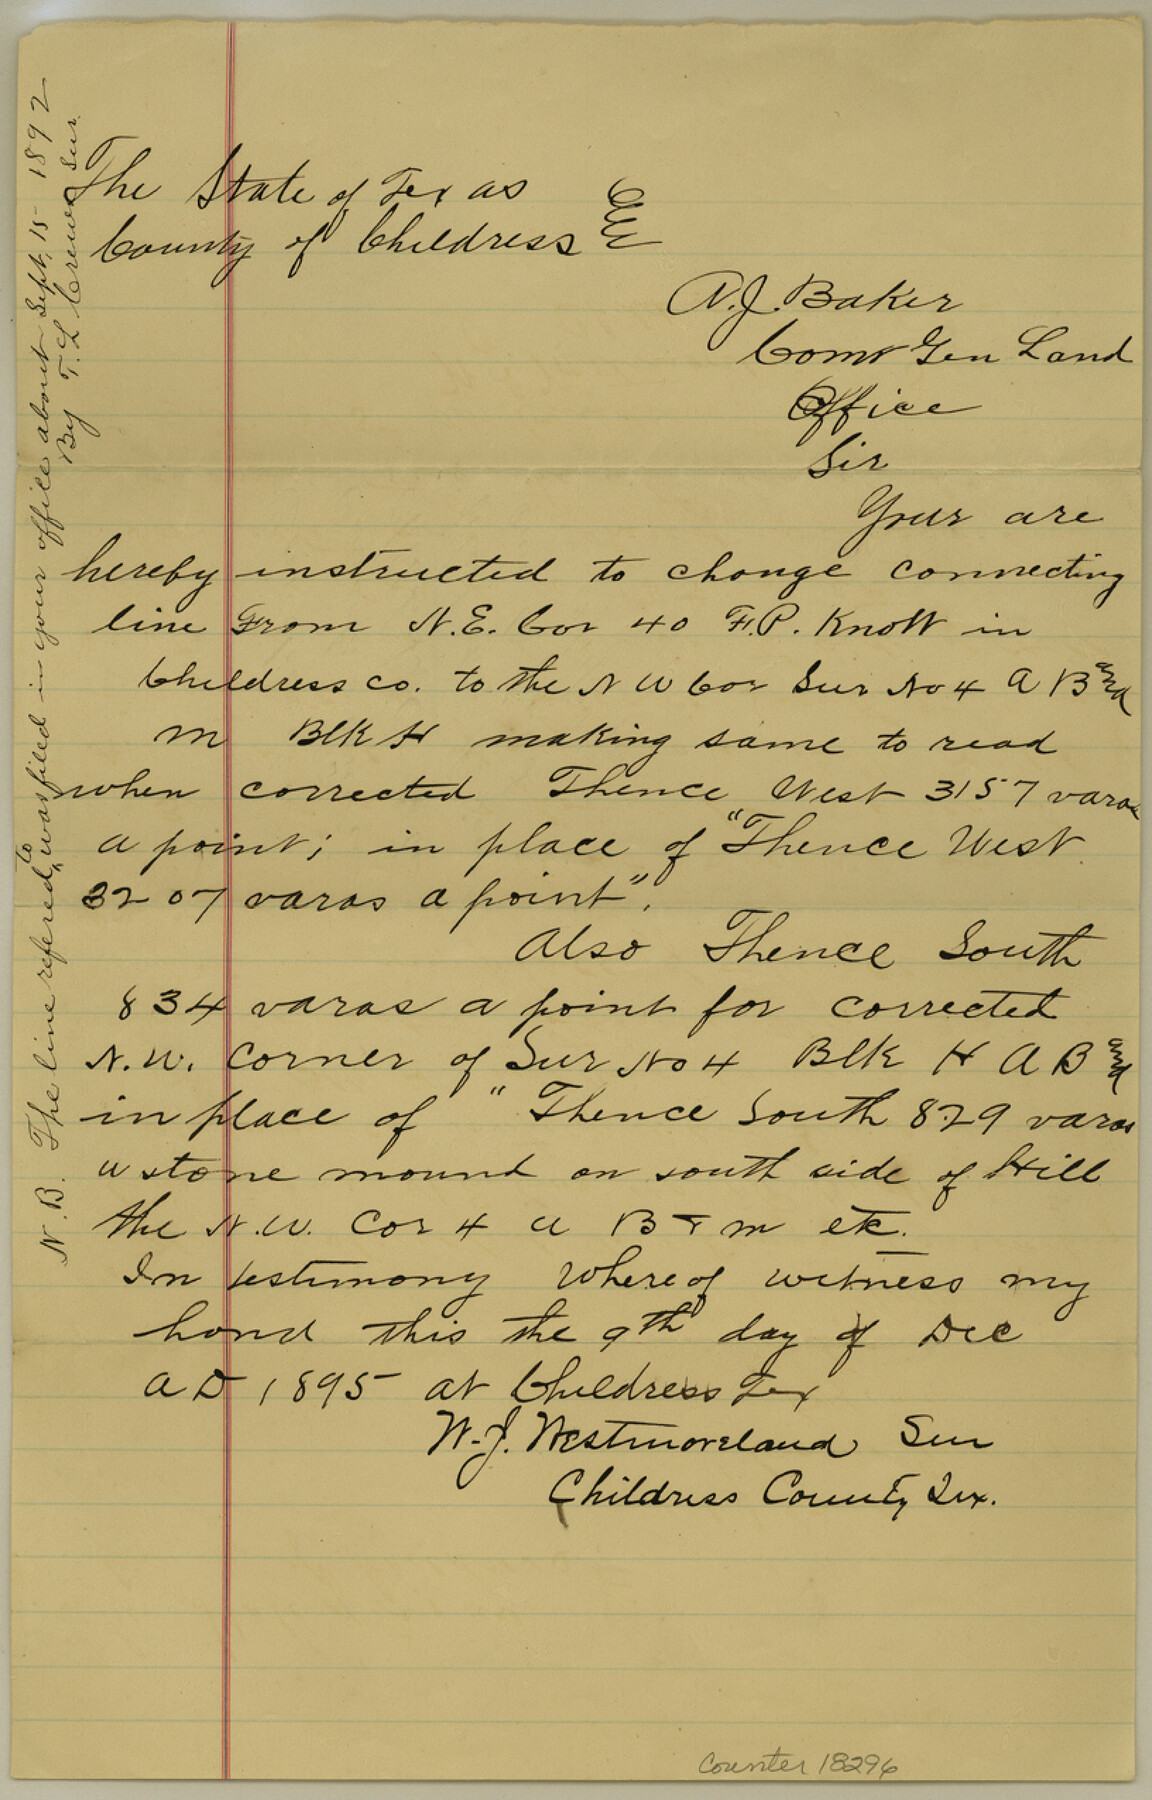 The State of Texas
County of Childress
A. J. Baker
Comr Gen Land
Office
Sir
Your are
hereby instructed to change connecting
line From N.E. Cor 40 F.P. Knott in
Childress co. to the N W Cor Sur No 4 A B and
M Blk H making same to read
when corrected Thence West 3157 varas
a point; in place of "Thence West
3207 varas a point".
Also Thence South
834 varas a point for corrected
N.W. Corner of Sur No 4 Blk H A B and
in place of "Thence South 829 varas
a stone mound on south side of Hill
the N.W. Cor 4 a B & m etc.
In testimony whereof witness my
hand this the 9th day of Dec
A D 1895 at Childress Tex
W. J. Westmoreland Sur
Childress County, Tex.
N.B. The line refered to was filed in your office about Sept, 15 1892
By T. L Crews Sur.
Counter 18296